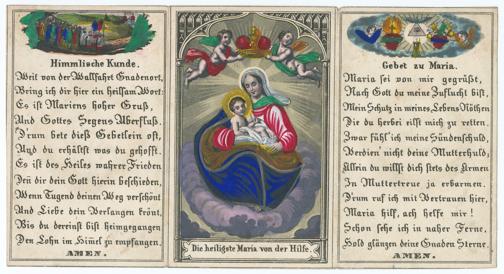 Himmlische Kunde.
Weit von der Wallfahrt Gnadenort,
Bring ich dir hier ein heilsam Wort:
Es ist Mariens hoher Gruß,
Und Gottes Segens Uberfluß.
D'rum bete dieß Gebetlein oft,
Und du erhältst was du gehofft.
Es ist des Heiles wahrer Frieden
Den dir dein Gott hierin beschieden,
Wenn Tugend deinen Weg verschönt
Und Liebe dein Verlangen krönt,
Bis du dereinst bist heimgegangen
Den Lohn im Himel zu empfangen.
AMEN.
Die heiligste Maria von der Hilfe.
Gebet zu Maria.
Maria sei von mir gegrüßt,
Nach Gott du meine Zuflucht bist,
Mein Schutz in meines Lebens Nöthen
Die du herbei eilst mich zu retten.
Zwar fühl' ich meine Sündenschuld,
Verdien' nicht deine Mutterhuld;
Allein du willst dich stets des Armen
In Muttertreue ja erbarmen.
D'rum ruf ich mit Vertrauen hier,
Maria hilf, ach helfe mir!
Schon sehe ich in naher Ferne,
Hold glänzen deine Gnaden Sterne.
AMEN.